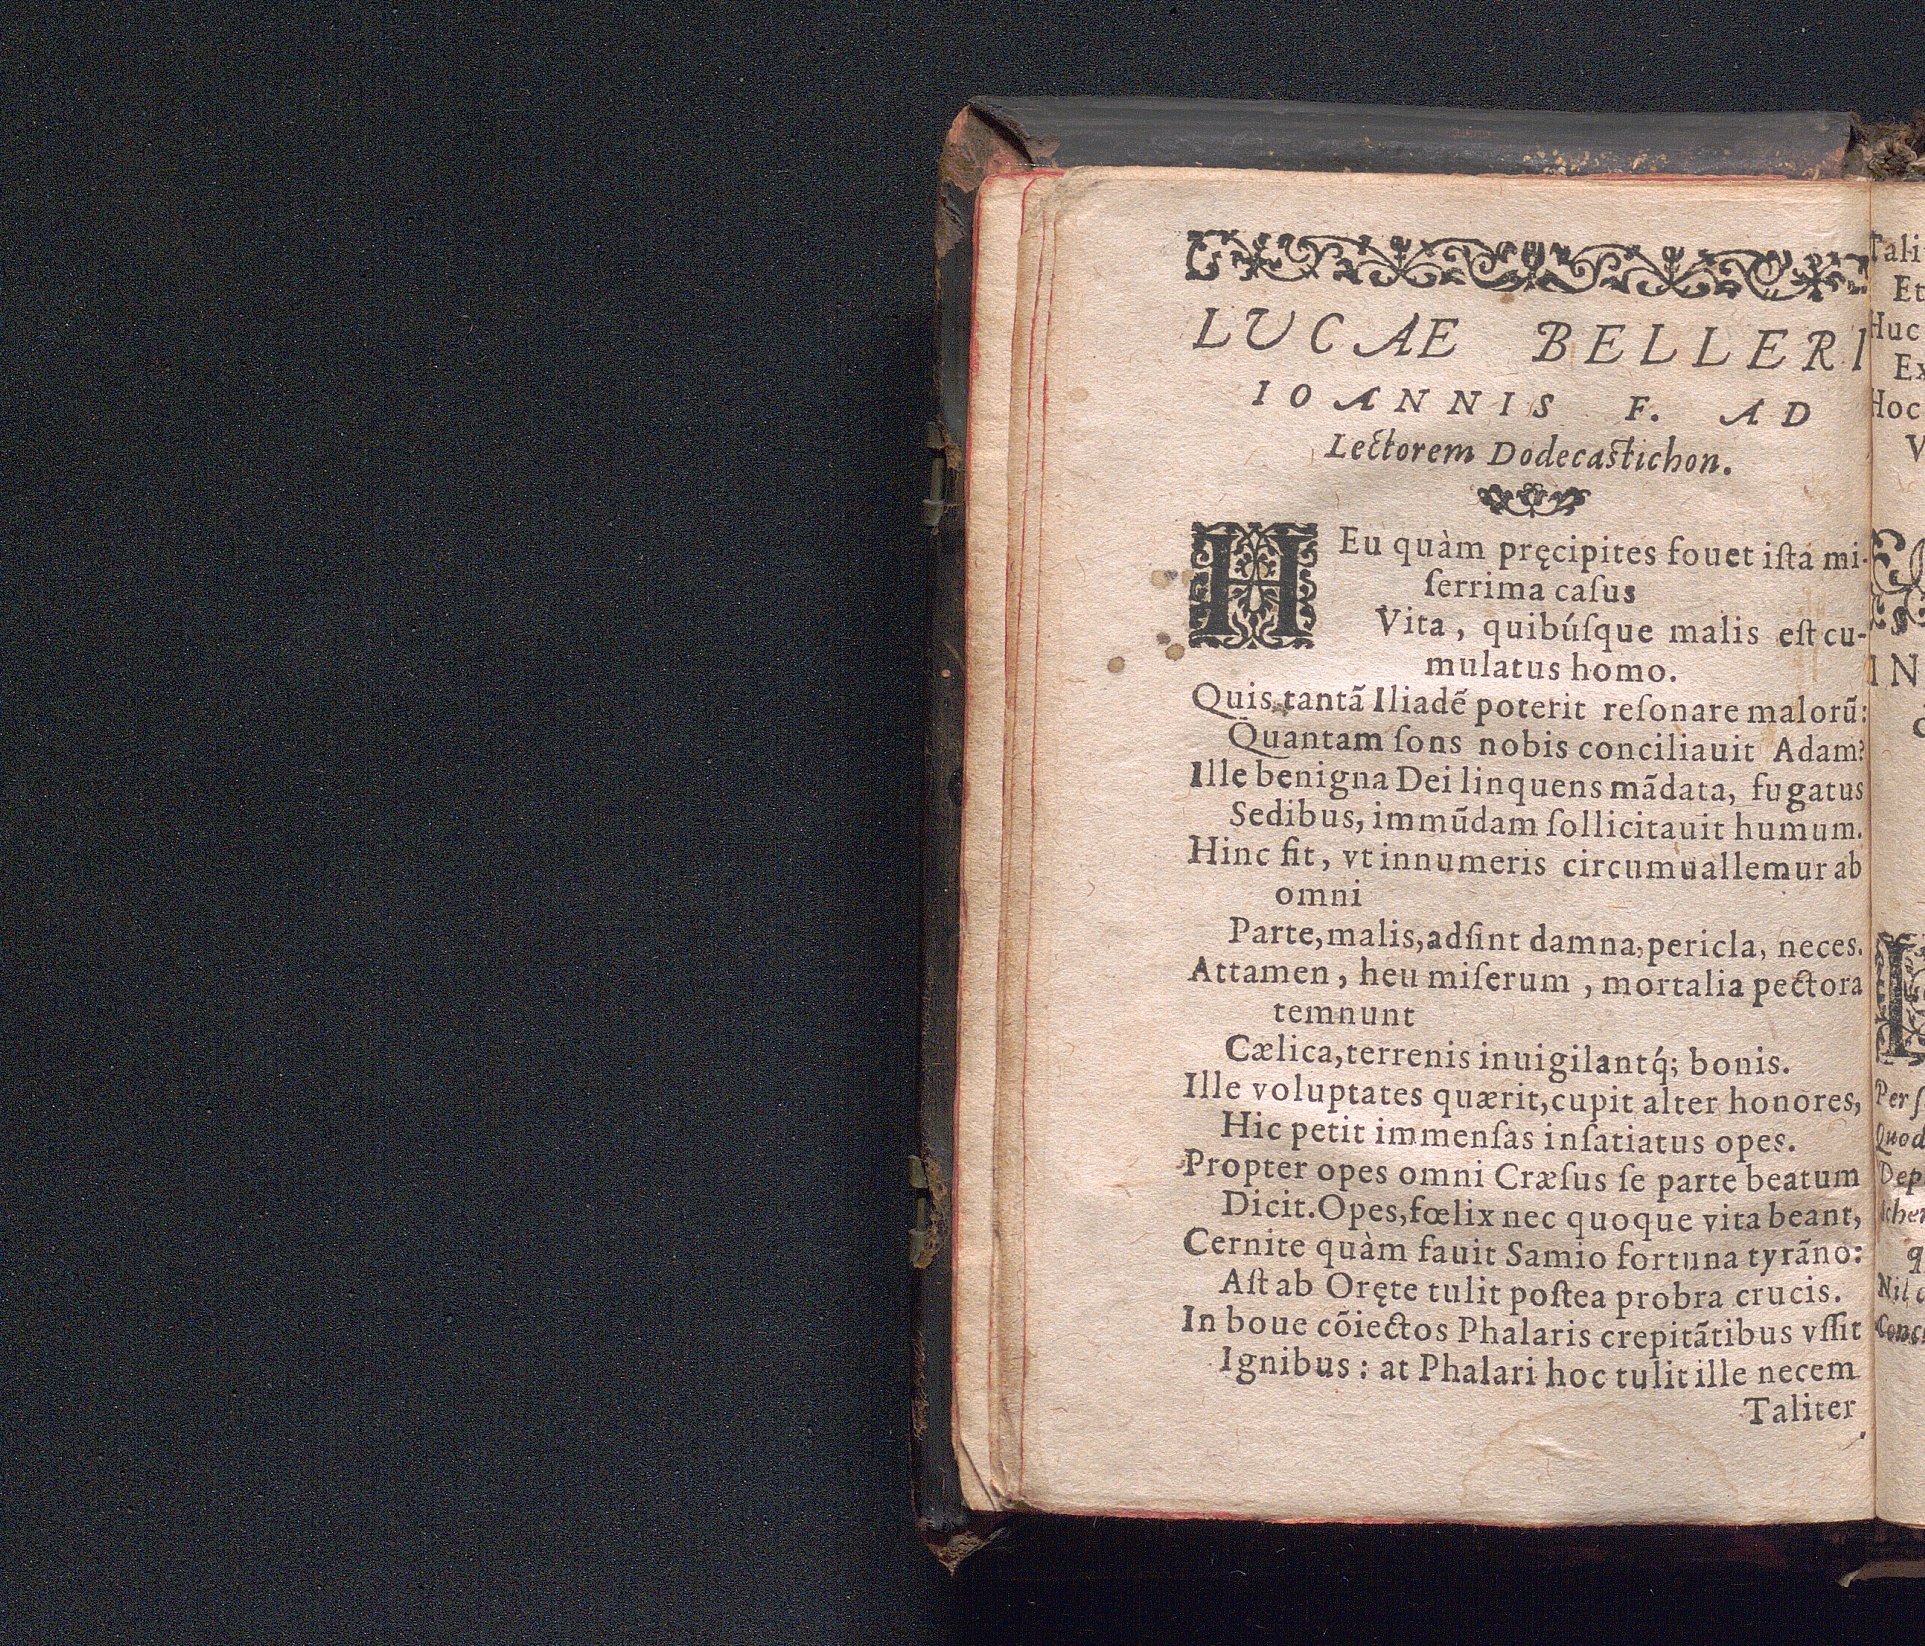 LUCAE BELLERI
IOANNIS F. AD
Lectorem Dodecastichon.
HEu quàm pręcipites fouet iſta mi-
ſerrima caſus
Vita, quibúſque malis eſt cu-
mulatus homo.
Quis tantã Iliadẽ poterit reſonare malorũ:
Quantam ſons nobis conciliauit Adam?
Ille benigna Dei linquens mãdata, fugatus
Sedibus, immũdam ſollicitauit humum.
Hinc fit, vt innumeris circumuallemur ab
omni
Parte, malis, adſint damna, pericla, neces.
Attamen, heu miſerum, mortalia pectora
temnunt
Cælica, terrenis inuigilantq́; bonis.
Ille voluptates quærit, cupit alter honores,
Hic petit immenſas inſatiatus opes.
Propter opes omni Cræſus ſe parte beatum
Dicit. Opes, fœlix nec quoque vita beant,
Cernite quàm fauit Samio fortuna tyrãno:
Aſt ab Oręte tulit poſtea probra crucis.
In boue cõiectos Phalaris crepitãtibus vſſit
Ignibus: at Phalari hoc tulit ille necem
Taliter
Tali
Et
Huc
Ex
Hoc
V
IN
Per ſ
Quod
Dep
Nil
Conc